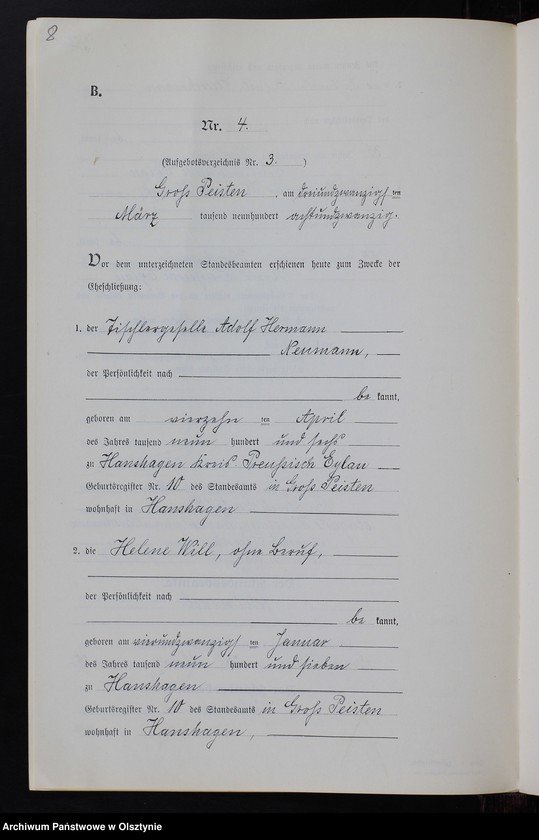 8
B.
Nr. 4.
(Aufgebotsverzeichnis Nr. 3. )
Groß Peisten , am dreiundzwanzigsten
März tausend neunhundert achtundzwanzig.
Vor dem unterzeichneten Standesbeamten erschienen heute zum Zwecke der
Eheschließung:
1. der Tischlergeselle Adolf Hermann
Neumann,
der Persönlichkeit nach
be kannt,
geboren am vierzehn ten April
des Jahres tausend neun hundert und sechs
zu Hanshagen Kreis Preußisch Eylau
Geburtsregister Nr. 10 des Standesamts in Groß Peisten
wohnhaft in Hanshagen
2. die Helene Will, ohne Beruf,
der Persönlichkeit nach
be kannt,
geboren am vierundzwanzigs ten Januar
des Jahres tausend neun hundert und sieben
zu Hanshagen
Geburtsregister Nr. 10 des Standesamts in Groß Peisten
wohnhaft in Hanshagen,
Archiwum Państwowe w Olsztynie